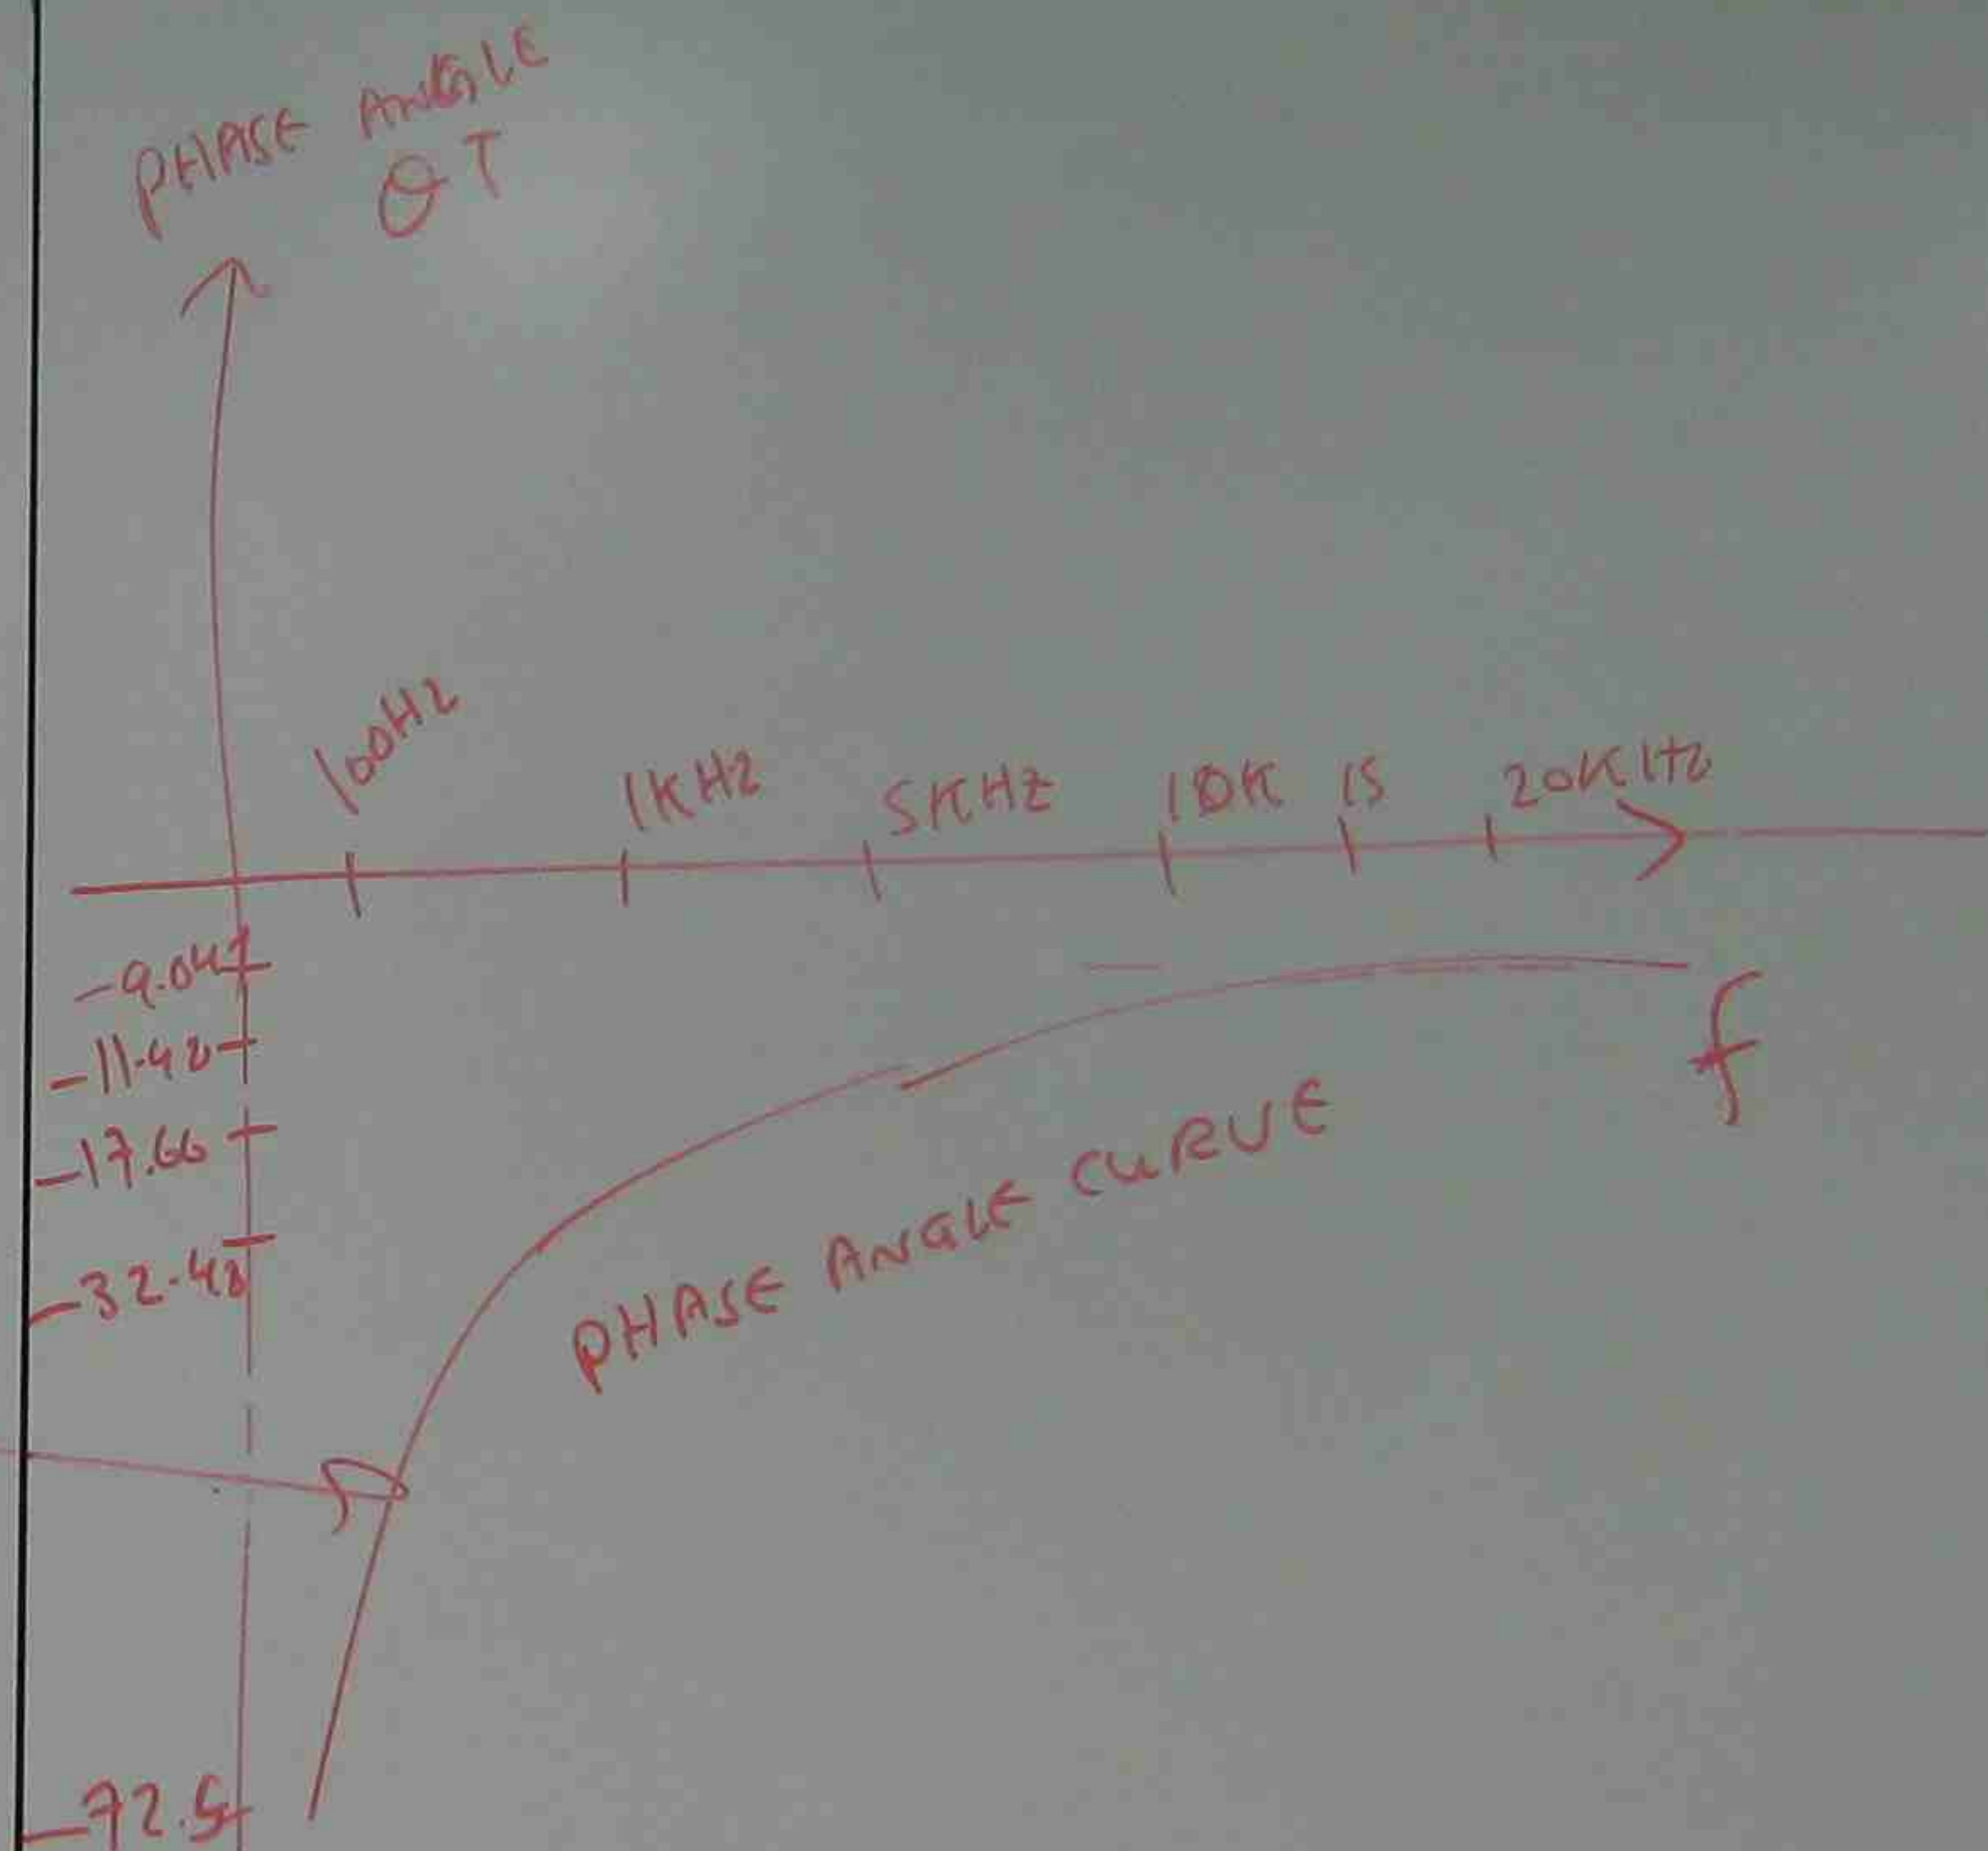 PHASE ANGLE
θT
100HZ
1KHZ
5KHZ
10K
15
20KHZ
-9.04
-11.42
-17.66
-32.48
-72.5
f
PHASE ANGLE CURVE